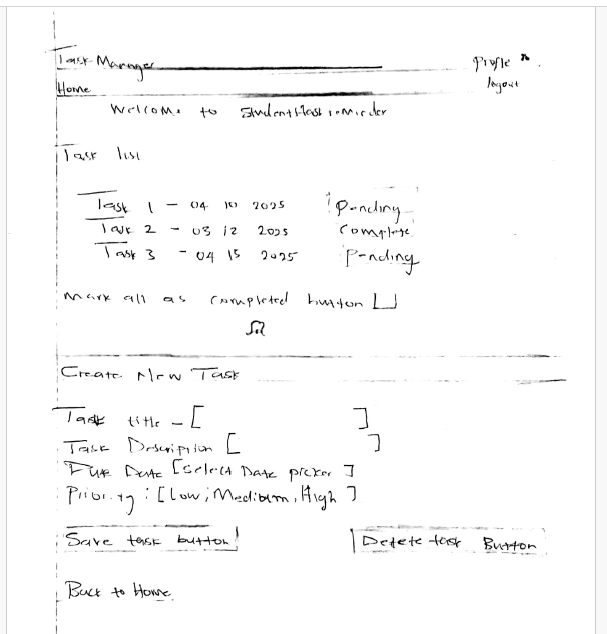 Task Manager
Profile
logout
Home
Welcome to
Task list
Task 1 - 04 10 2025 Pending
Task 2 - 03 12 2025 Complete
Task 3 - 04 15 2025 Pending
Mark all as completed button
Create New Task
Task title - [ ]
Task Description [ ]
Due Date [Select Date picker]
Priority : [Low, Medium, High]
Save task button
Delete task Button
Back to Home